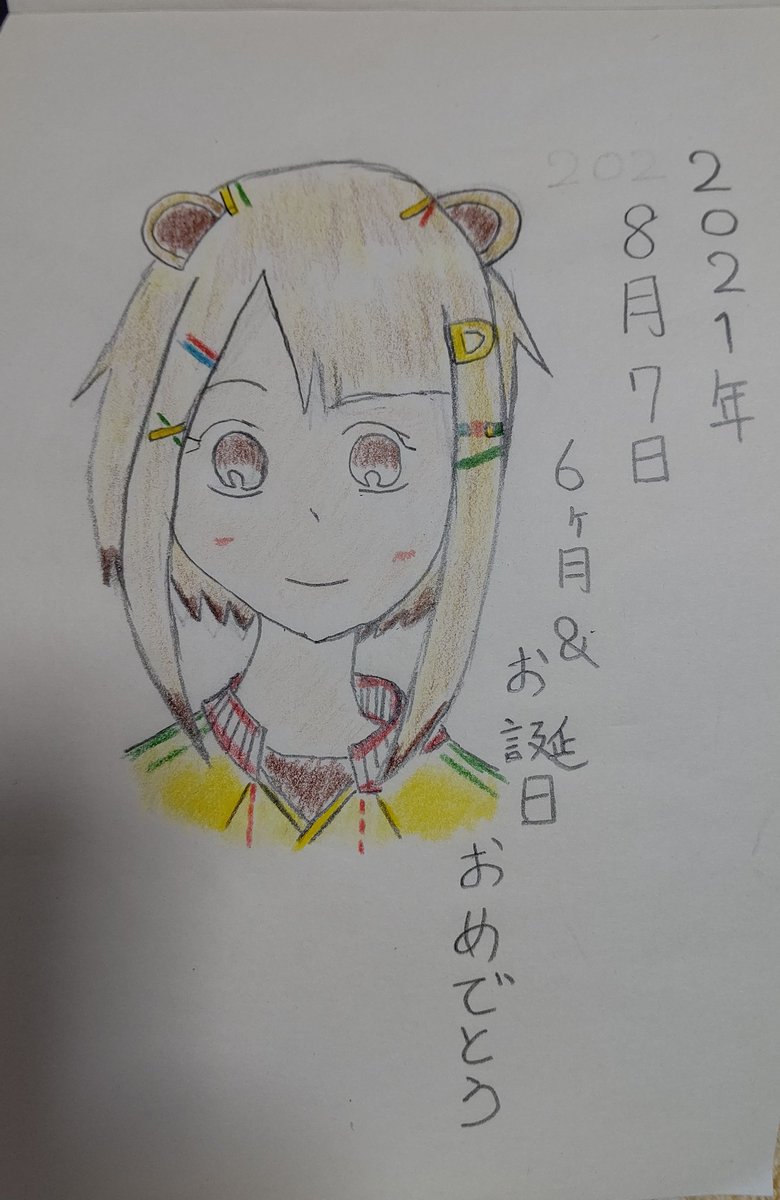 2021年
8月7日
6ヶ月&
お誕日
おめでとう
202
D